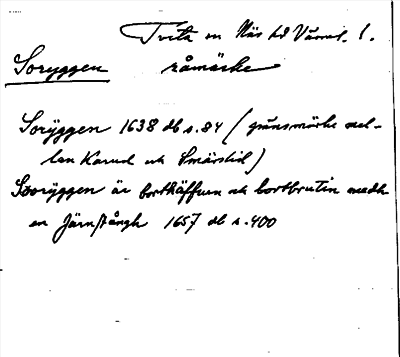 Tveta sn Näs hd Värml. l.
Soryggen råmärke
Sorÿggen 1638 db s. 84 (gränsmärke mel-
lan Karud och Smärstid)
Sooryggen är bortkäffuen och bortbruten medh
en Järnstångh 1657 db s. 400